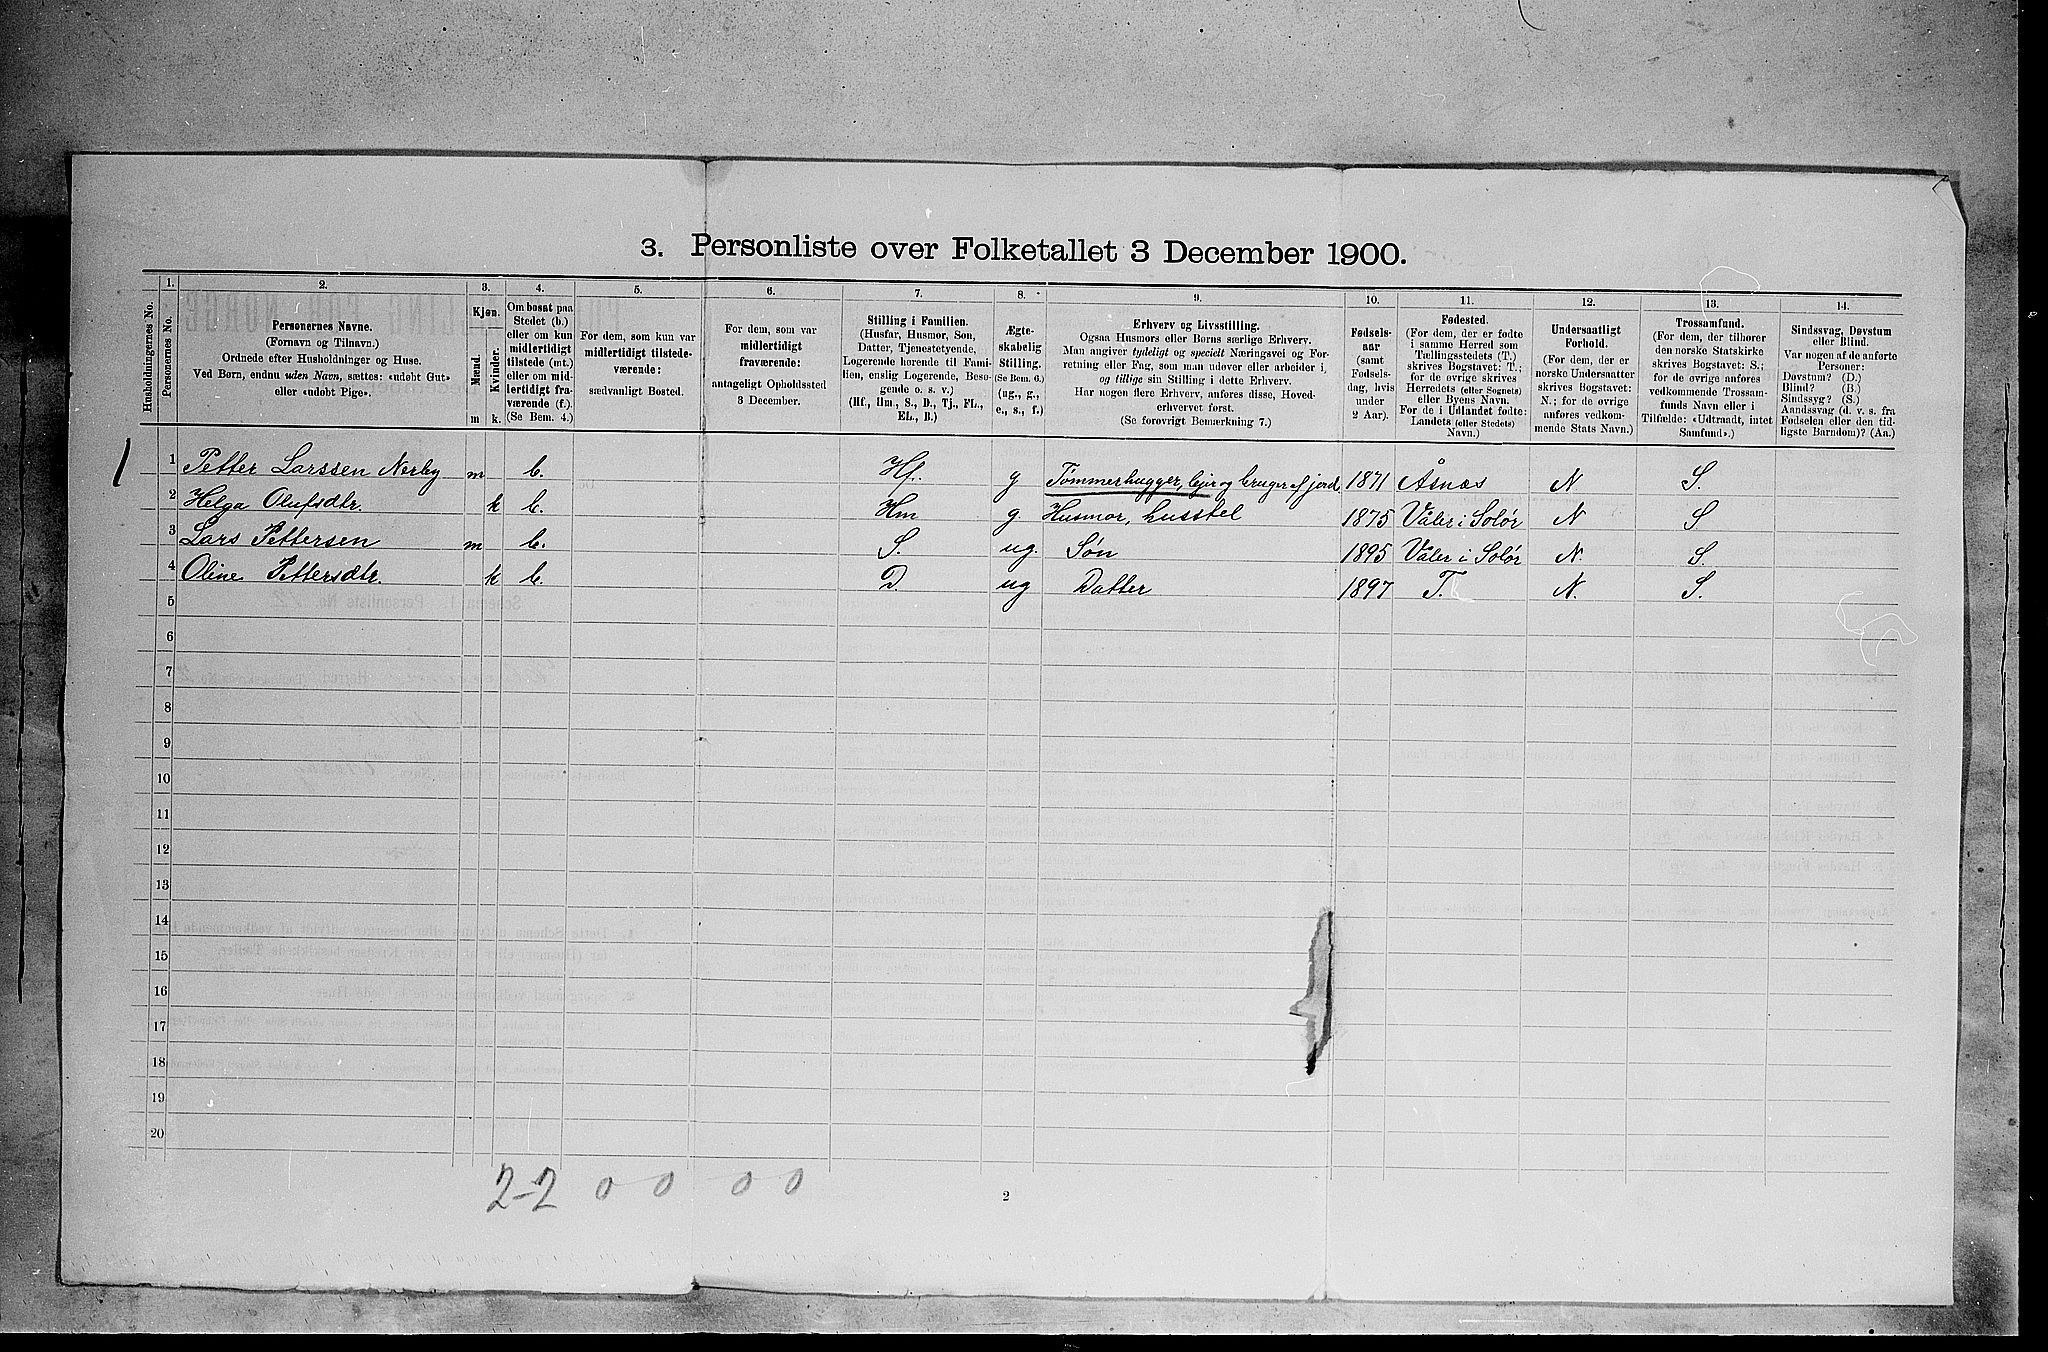 3. Personliste over Folketallet 3 December 1900.
Husholdningernes No.
1.
Personernes No.
2.
Personernes Navne.
(Fornavn og Tilnavn.)
Ordnede efter Husholdninger og Huse.
Ved Børn, endnu uden Navn, sættes: «udøbt Gut»
eller «udøbt Pige».
3.
Kjøn.
Mænd.
Kvinder.
m k.
4.
Om bosat paa
Stedet (b.)
eller om kun
midlertidigt
tilstede (mt.)
eller om mid-
lertidigt fra-
værende (f.).
(Se Bem. 4.)
5.
For dem, som kun var
midlertidigt tilstede-
værende:
sædvanligt Bosted.
6.
For dem, som var
midlertidigt
fraværende:
antageligt Opholdssted
3 December.
7.
Stilling i Familien.
(Husfar, Husmor, Søn,
Datter, Tjenestetyende,
Logerende hørende til Fami-
lien, enslig Logerende, Besø-
gende o. s. v.)
(Hf., Hm., S., D., Tj., FL.,
EL., B.)
8.
Ægte-
skabelig
Stilling.
(Se Bem. 6.)
(ug., g.,
e., s., f.)
9.
Erhverv og Livsstilling.
Ogsaa Husmors eller Børns særlige Erhverv.
Man angiver tydeligt og specielt Næringsvei og For-
retning eller Fag, som man udøver eller arbeider i,
og tillige sin Stilling i dette Erhverv.
Har nogen flere Erhverv, anføres disse, Hoved-
erhvervet først.
(Se forøvrigt Bemærkning 7.)
10.
Fødsels-
aar
(samt
Fødsels-
dag, hvis
under
2 Aar).
11.
Fødested.
(For dem, der er fødte
i samme Herred som
Tællingsstedets (T.)
skrives Bogstavet: T.;
for de øvrige skrives
Herredets (eller Sognets)
eller Byens Navn.
For de i Udlandet fødte:
Landets (eller Stedets)
Navn.)
12.
Undersaatligt
Forhold.
(For dem, der er
norske Undersaatter
skrives Bogstavet:
N.; for de øvrige
anføres vedkom-
mende Stats Navn.)
13.
Trossamfund.
(For dem, der tilhører
den norske Statskirke
skrives Bogstavet: S.;
for de øvrige anføres
vedkommende Trossam-
funds Navn eller i
Tilfælde: «Udtraadt, intet
Samfund».)
14.
Sindssvag, Døvstum
eller Blind.
Var nogen af de anførte
Personer:
Døvstum? (D.)
Blind? (B.)
Sindssyg? (S.)
Aandssvag (d. v. s. fra
Fødselen eller den tid-
ligste Barndom)? (Aa.)
1 1 Petter Larssen Nerby m b. Hf. g Tømmerhugger, leier og bruger af jord 1871 Åsnæs N S.
2 Helga Olufsdtr. k b. Hm g Husmor, husstel 1875 Våler i Solør N S
3 Lars Pettersen m b. S. ug. Søn 1895 Våler i Solør N. S.
4 Oline Pettersdtr. k b. D. ug Datter 1897 T. N. S.
5
6
7
8
9
10
11
12
13
14
15
16
17
18
19
20
2-2 0 0 0 0
2